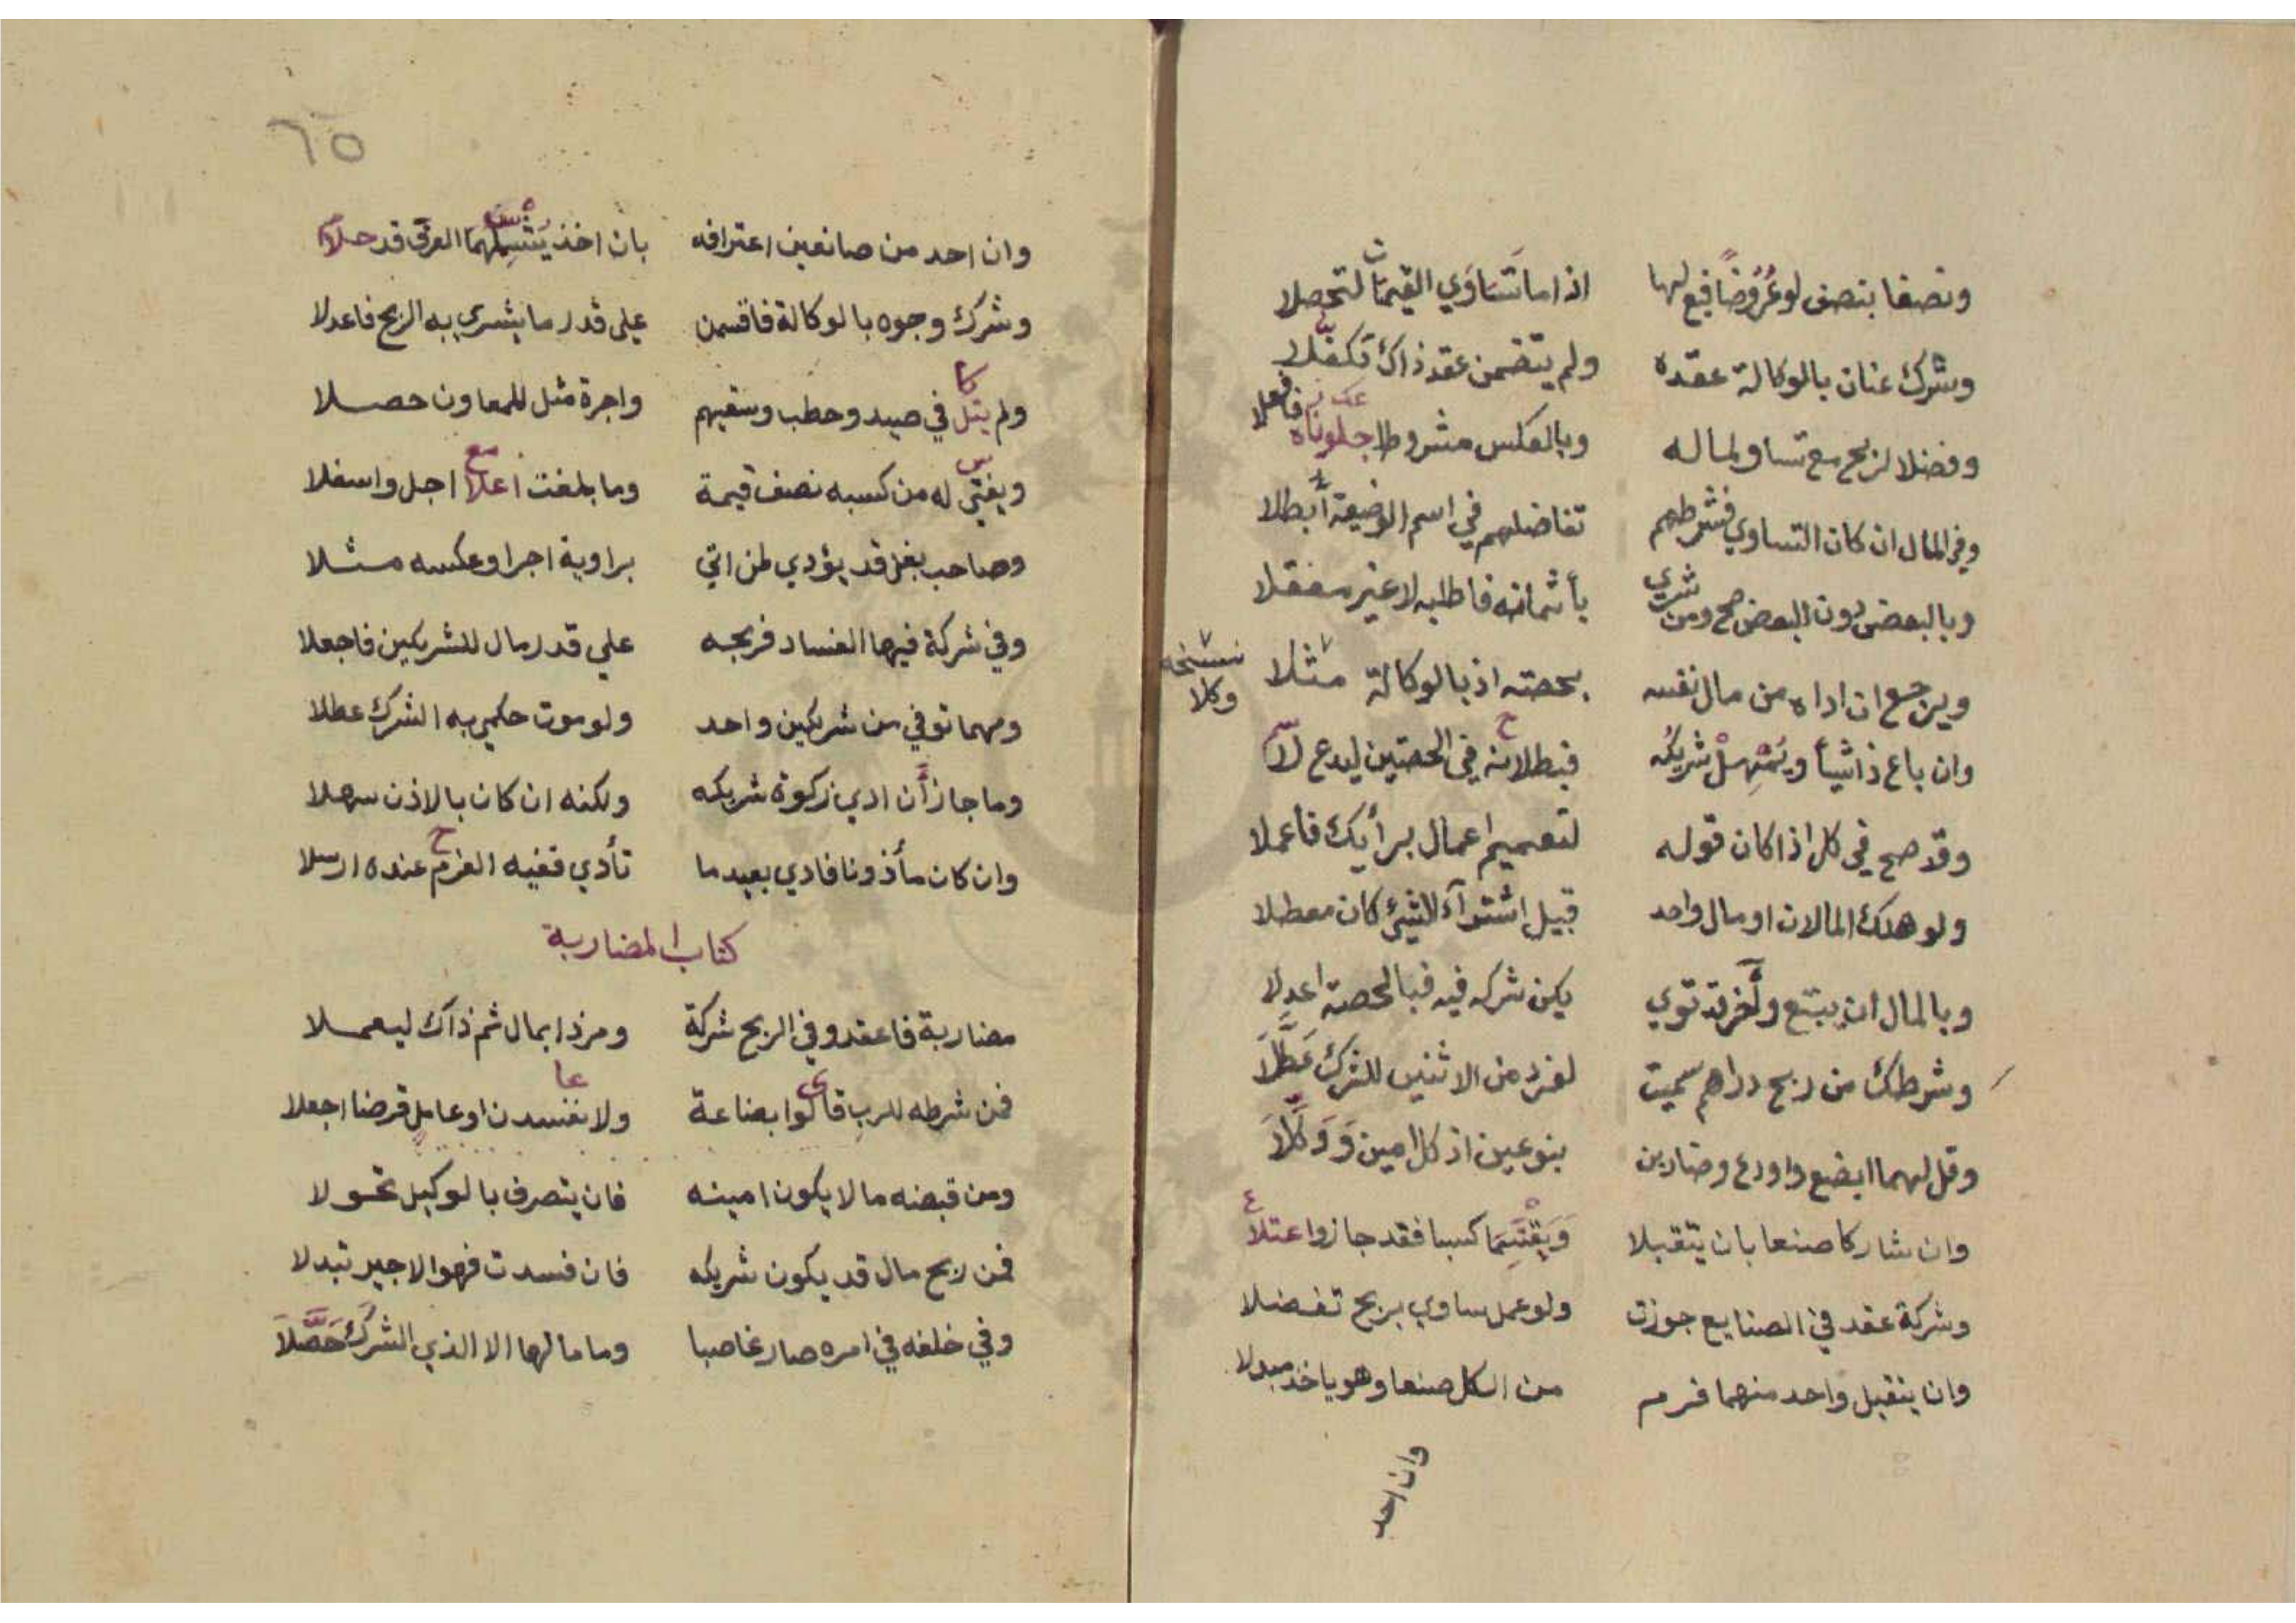 ونصفا بنصف لوعُرُوضًا فبع لها اذا ما تَسَاوي القيمات لتحصلا
وشرك عنان بالوكالة عقده ولم يتضمن عقد ذاك تكفّلا
وفضلا لربح مع تساو لماله وبالعكس مشروطا جلوناه فافعلا
وفي المال ان كان التساوي فشرطهم تفاضلهم في اسم الوضيعة أبطلا
وبالبعض دون البعض صح ومن شري بأثمانه فاطلبه لا غير مغفلا
ويرجع ان اداه من مال نفسه بحصته اذ بالوكالة مثلا
نسخه وكلا
وان باع ذا شيأ ويمهل شريكه فبطلانه في الحصتين ليدع لا
وقد صح في كل اذا كان قوله لتعميم اعمال برأيك فاعملا
ولو هلك المالان او مال واحد قبيل اشتراء الشيئ كان معطلا
وبالمال ان يبتع وآخر قد توي يكن شركه فيه فبالحصة اعدلا
وشرطك من ربح دراهم سميت لفرد من الاثنين للشرك عَطَّلَا
وقل لهما ابضع واودع وضاربن بنوعين اذ كل امين وَوَكَّلَا
وان شاركا صنعا بان يتقبلا وَيَقْتَسِمَا كسبا فقد جاز واعتلا
وشركة عقد في الصنايع جوزت ولو عمل ساوي بربح تفضلا
وان يتقبل واحد منهما فرم من الكل صنعا وهو ياخذ مبدلا
وان احد
٦٥
وان احد من صانعين اعترافه بان اخذ العرق قد حلا
وشرك وجوه بالوكالة فاقسمن على قدر ما يشري به الربح فاعدلا
ولم يتل في صيد وحطب وسقيهم واجرة مثل للمعاون حصلا
ويفتي له من كسبه نصف قيمة وما بلغت اعلا اجل واسفلا
وصاحب بغل قد يؤدي لمن اتي براوية اجرا وعكسه مثلا
وفي شركة فيها الفساد فربحه علي قدر مال للشريكين فاجعلا
ومهما توفي من شريكين واحد ولو موت حكمي به الشرك عطلا
وما جاز أن ادي زكوة شريكه ولكنه ان كان بالاذن سهلا
وان كان مأذونا فادي بعيد ما تأدي ففيه الغرم عنده ارسلا
كتاب المضاربة
مضاربة فاعقد وفي الربح شركة ومرذا بمال ثم ذاك ليعملا
فمن شرطه للرب قالوا بضاعة ولا تفسدن او عامل قرضا اجعلا
ومن قبضه مالا يكون امينه فان يتصرف بالوكيل تحولا
فمن ربح مال قد يكون شريكه فان فسدت فهو الاجير تبدلا
وفي خلفه في امره صار غاصبا وما مالها الا الذي الشرك حَصَّلَا